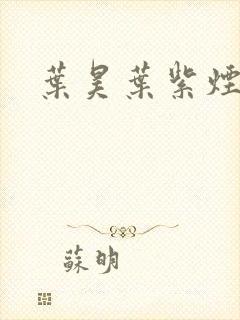 葉昊葉紫煙
蘇明